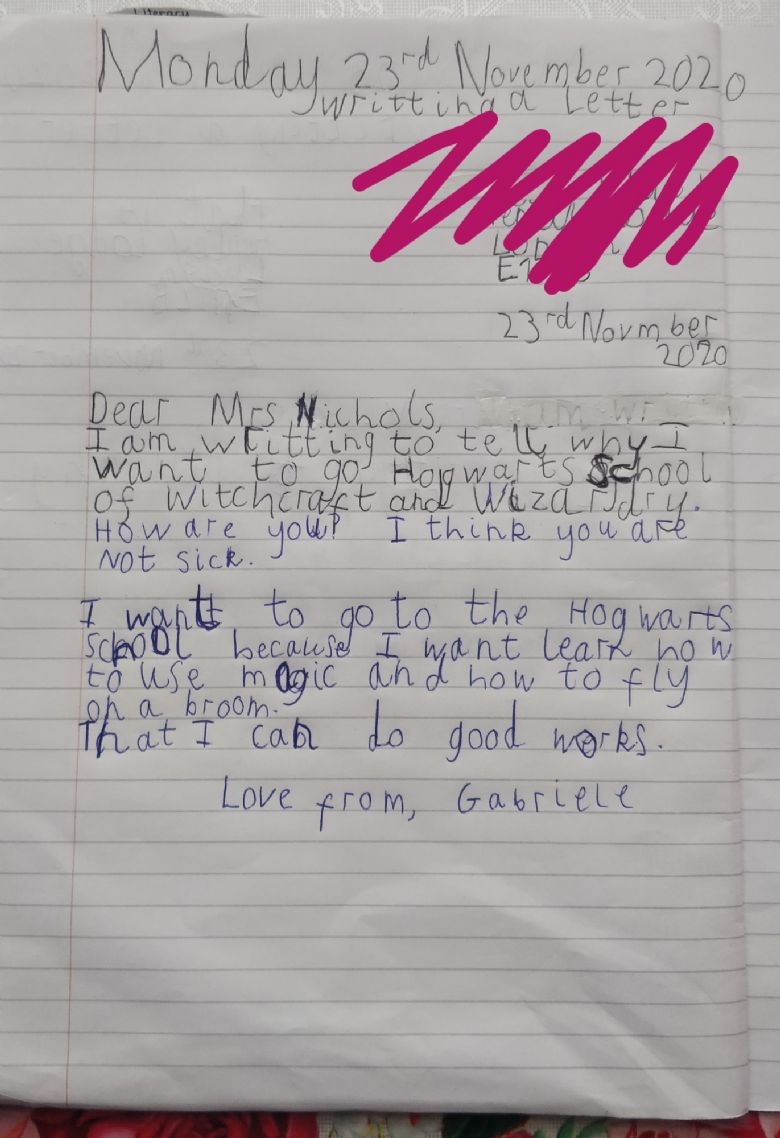 Literacy
Monday 23rd November 2020
writting a Letter
23rd Novmber
2020
Dear Mrs Nichols,
I am writting to tell why I
want to go Hogwarts School
of witchcraft and Wizardry.
How are you? I think you are
not sick.
I want to go to the Hogwarts
school because I want learn how
to use magic and how to fly
on a broom.
That I can do good works.
Love from, Gabriele